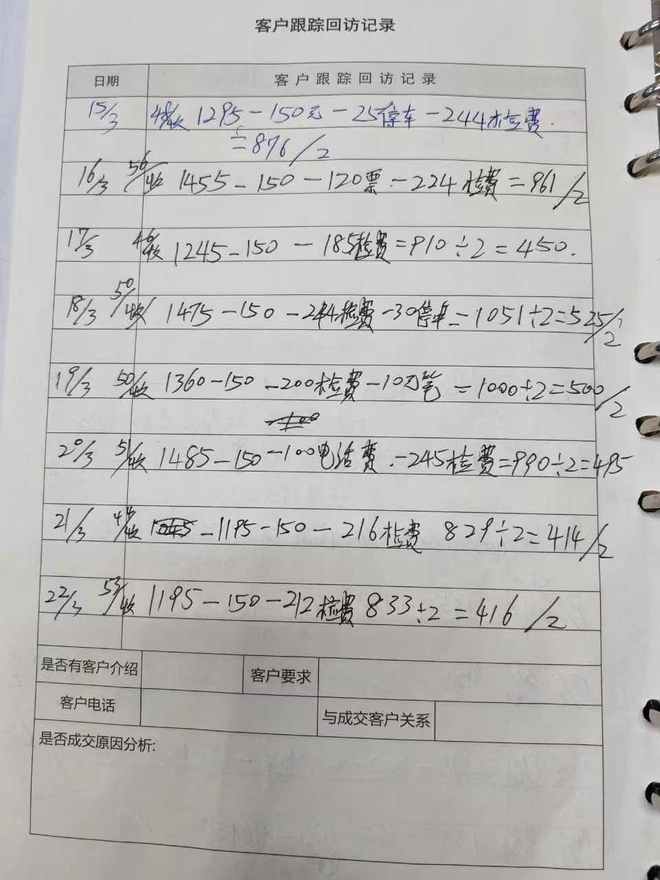 客户跟踪回访记录
日期 客户跟踪回访记录
15/3 48/收 1295-150元-25停车-244检费.
=876/2
16/3 56/收 1455-150-120票-224检费=961/2
17/3 46收 1245-150-185检费=910÷2=450.
18/3 50/收 1475-150-244检费-30停车=1051÷2=525/2
19/3 50/收 1360-150-200检费-10刀笔=1000÷2=500/2
20/3 51/收 1485-150-100电话费-245检费=990÷2=495
21/3 44/收 -1195-150-216检费 829÷2=414/2
22/3 53/收 1195-150-212检费 833÷2=416/2
是否有客户介绍 客户要求
客户电话 与成交客户关系
是否成交原因分析: